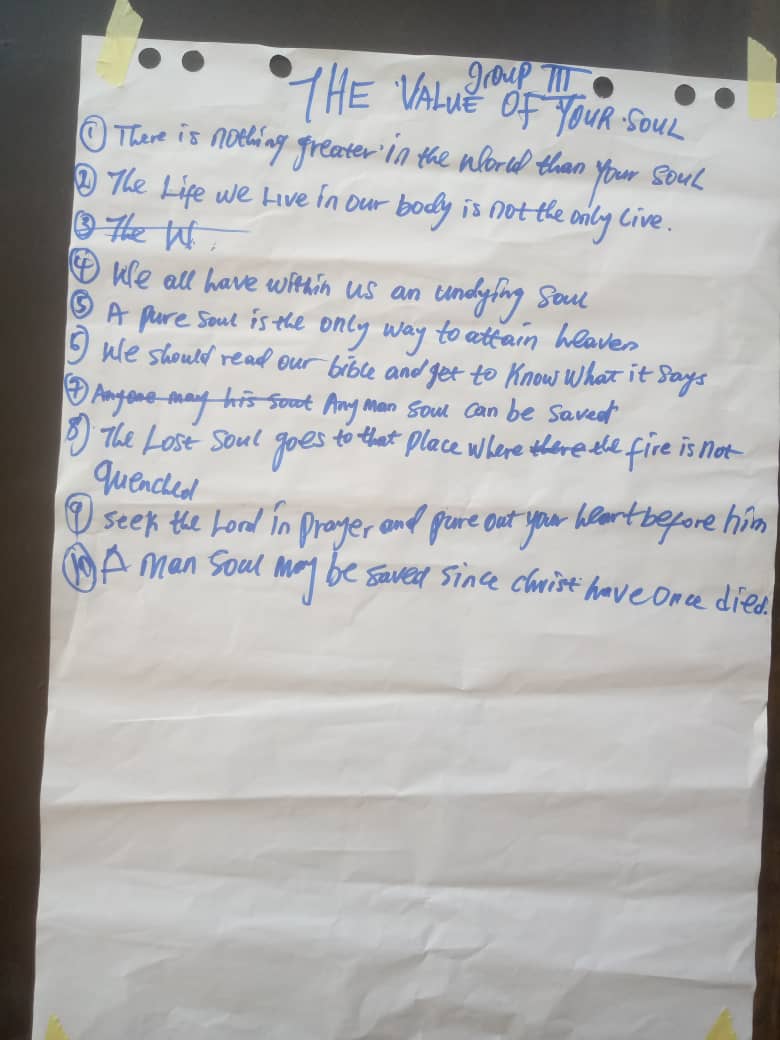 group III
THE VALUE OF YOUR SOUL
① There is nothing greater in the world than your soul
② The Life we Live in our body is not the only Live.
③ The W
④ We all have within us an undying soul
⑤ A pure soul is the only way to attain heaven
6) We should read our bible and get to know what it says
⑦ Anyone may his soul Any man soul can be saved
8) The Lost soul goes to that place where there the fire is not
quenched
⑨ seek the Lord in prayer and pure out your heart before him
⑩ A man soul may be saved since christ have once died.